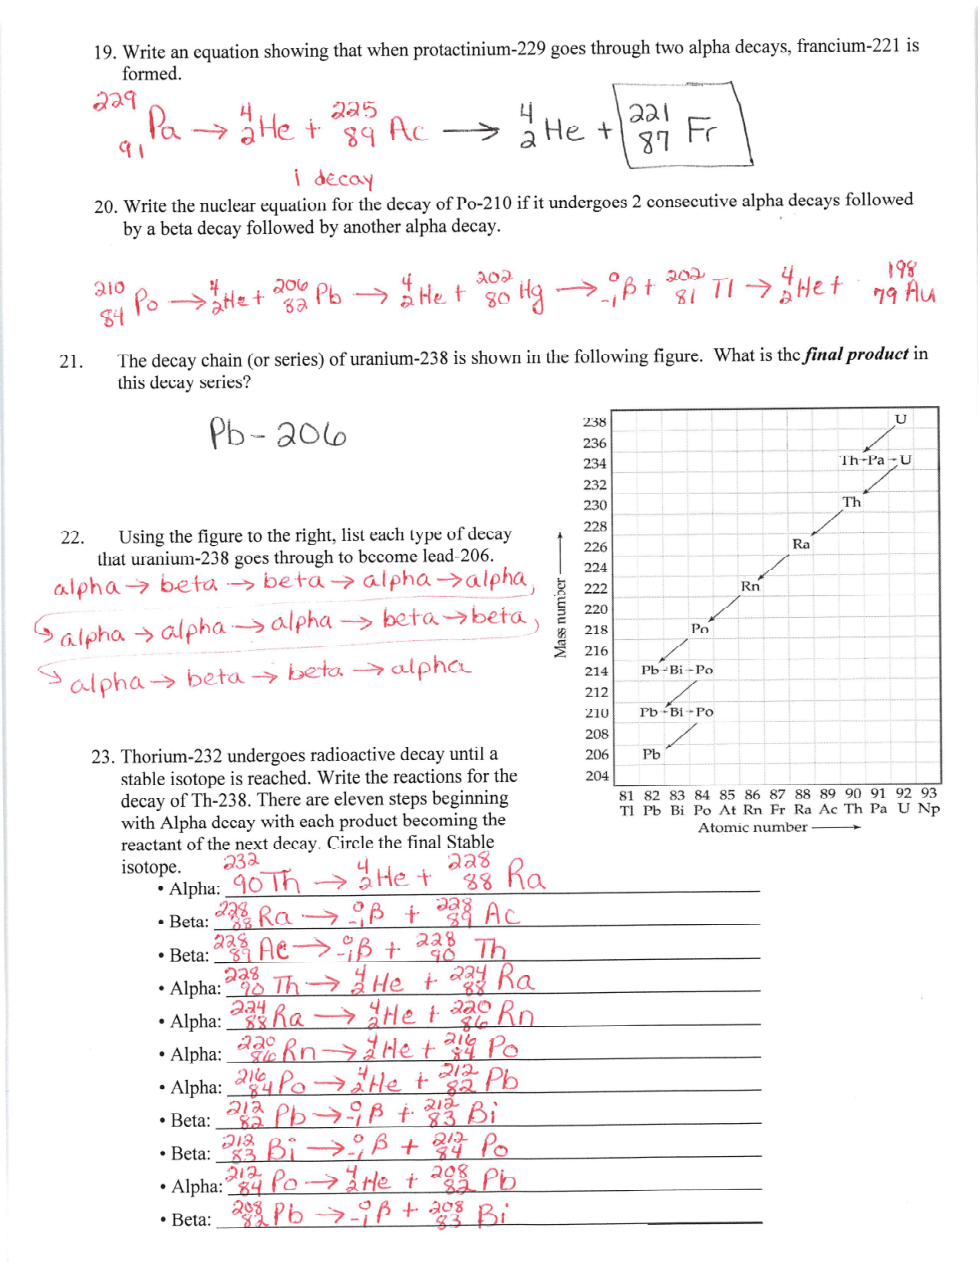 19. Write an equation showing that when protactinium-229 goes through two alpha decays, francium-221 is
formed.
229 91 Pa → 4 2 He + 225 89 Ac → 4 2 He + 221 87 Fr
i decay
20. Write the nuclear equation for the decay of Po-210 if it undergoes 2 consecutive alpha decays followed
by a beta decay followed by another alpha decay.
210 84 Po → 4 2 He + 206 82 Pb → 4 2 He + 202 80 Hg → 0 -1 β + 202 81 Tl → 4 2 He + 198 79 Au
21. The decay chain (or series) of uranium-238 is shown in the following figure. What is the final product in
this decay series?
Pb-206
22. Using the figure to the right, list each type of decay
that uranium-238 goes through to become lead-206.
alpha → beta → beta → alpha → alpha,
alpha → alpha → alpha → beta → beta,
alpha → beta → beta → alpha
238 U
236
234 Th-Pa-U
232
230 Th
228
226 Ra
224
222 Rn
220
218 Po
216
214 Pb-Bi-Po
212
210 Pb-Bi-Po
208
206 Pb
204
Mass number →
81 82 83 84 85 86 87 88 89 90 91 92 93
Tl Pb Bi Po At Rn Fr Ra Ac Th Pa U Np
Atomic number →
23. Thorium-232 undergoes radioactive decay until a
stable isotope is reached. Write the reactions for the
decay of Th-238. There are eleven steps beginning
with Alpha decay with each product becoming the
reactant of the next decay. Circle the final Stable
isotope.
• Alpha: 232 90 Th → 4 2 He + 228 88 Ra
• Beta: 228 88 Ra → 0 -1 β + 228 89 Ac
• Beta: 228 89 Ac → 0 -1 β + 228 90 Th
• Alpha: 228 90 Th → 4 2 He + 224 88 Ra
• Alpha: 224 88 Ra → 4 2 He + 220 86 Rn
• Alpha: 220 86 Rn → 4 2 He + 216 84 Po
• Alpha: 216 84 Po → 4 2 He + 212 82 Pb
• Beta: 212 82 Pb → 0 -1 β + 212 83 Bi
• Beta: 212 83 Bi → 0 -1 β + 212 84 Po
• Alpha: 212 84 Po → 4 2 He + 208 82 Pb
• Beta: 208 82 Pb → 0 -1 β + 208 83 Bi